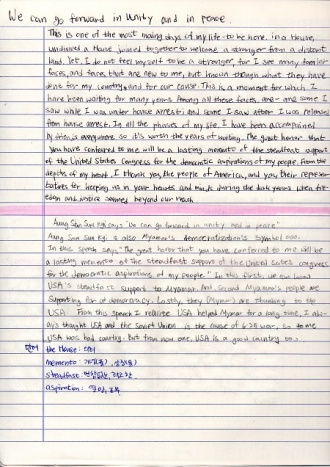 We can go forward in Unity and in peace.
This is one of the most moving days of my life - to be here. in a House,
undivided a House joined together to welcome a stranger from a distant
land. Yet, I do not feel myself to be a stranger, for I see many familiar
faces, and faces that are new to me, but known through what they have
done for my country and for our cause. This is a moment for which I
have been waiting for many years. Among all these faces, are - are some I
saw while I was under house arrest and some I saw after I was released
from house arrest. In all the phases of my life I have been accompanied
by friends everywhere, so it's worth the years of waiting. The great honor that
you have conferred to me will be a lasting memento of the steadfast support
of the United States Congress for the democratic aspirations of my people. From the
depths of my heart, I thank you, the people of America, and you their represen-
tatives for keeping us in your hearts and minds during the dark years when free-
dom and justice seemed beyond our reach
Aung San Suu Kyi says "We can go forward in unity and in peace"
Aung San Suu Kyi is also Myanmar's democratization's symbol
In this speech says "The great honor that you have conferred to me will be
a lasting memento of the steadfast support of the United States congress
for the democratic aspirations of my people." In this first, we can
USA's steadfast support to Myanmar. And second Myanmar's people are
supporting for democracy. Lastly they (Myanmar) are thanking to the
USA. From this speech I realize USA helped Myanmar for a long time. I alw-
ays thought USA and the Soviet Union is the cause of 6·25 war, so to me
USA was bad country. But from now one, USA is a good country to.
단어
the House:
memento:
steadfast:
aspiration: